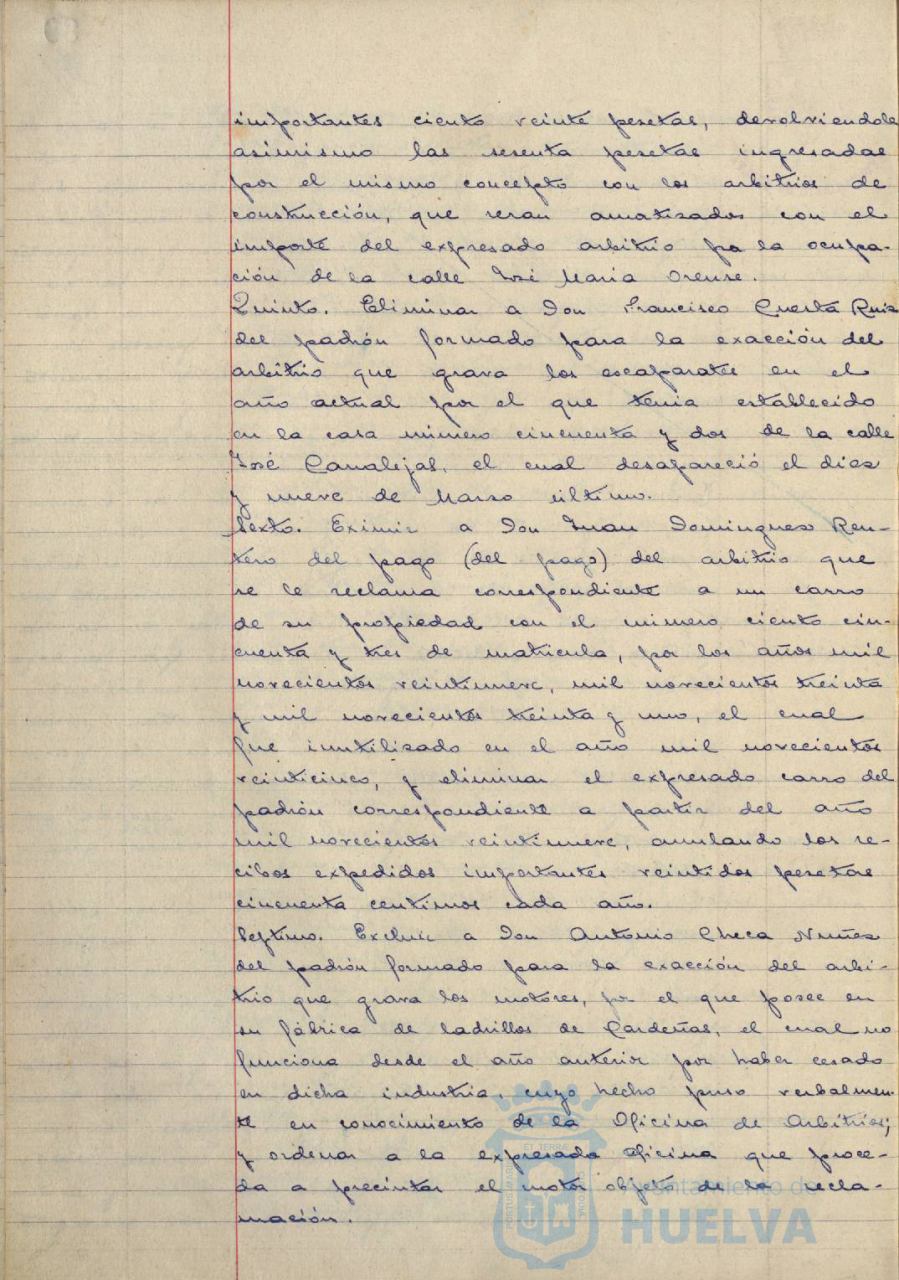 importantes ciento veinte pesetas, devolviendole
asimismo las sesenta pesetas ingresadas
por el mismo concepto con los arbitrios de
construcción, que seran amatizados con el
importe del expresado arbitrio pa la ocupa-
ción de la calle José Maria Orense.
Quinto. Eliminar a Don Francisco Cuesta Ruiz
del padrón formado para la exacción del
arbitrio que grava los escaparates en el
año actual por el que tenia establecido
en la casa número cincuenta y dos de la calle
José Canalejas, el cual desapareció el diez
y nueve de Marzo último.
Sexto. Eximir a Don Juan Dominguez Ren-
tero del pago (del pago) del arbitrio que
se le reclama correspondiente a un carro
de su propiedad con el número ciento cin-
cuenta y tres de matricula, por los años mil
novecientos veintinueve, mil novecientos treinta
y mil novecientos treinta y uno, el cual
fue inutilizado en el año mil novecientos
veinticinco, y eliminar el expresado carro del
padrón correspondiente a partir del año
mil novecientos veintinueve, anulando los re-
cibos expedidos importantes veintidos pesetas
cincuenta centimos cada año.
Septimo. Excluir a Don Antonio Checa Nuñez
del padrón formado para la exacción del arbi-
trio que grava los motores, por el que posee en
su fábrica de ladrillos de Cardeñas, el cual no
funciona desde el año anterior por haber cesado
en dicha industria, cuyo hecho puso verbalmen-
te en conocimiento de la Oficina de Arbitrios;
y ordenar a la expresada Oficina que proce-
da a precintar el motor objeto de la recla-
mación.
Ayuntamiento de
HUELVA